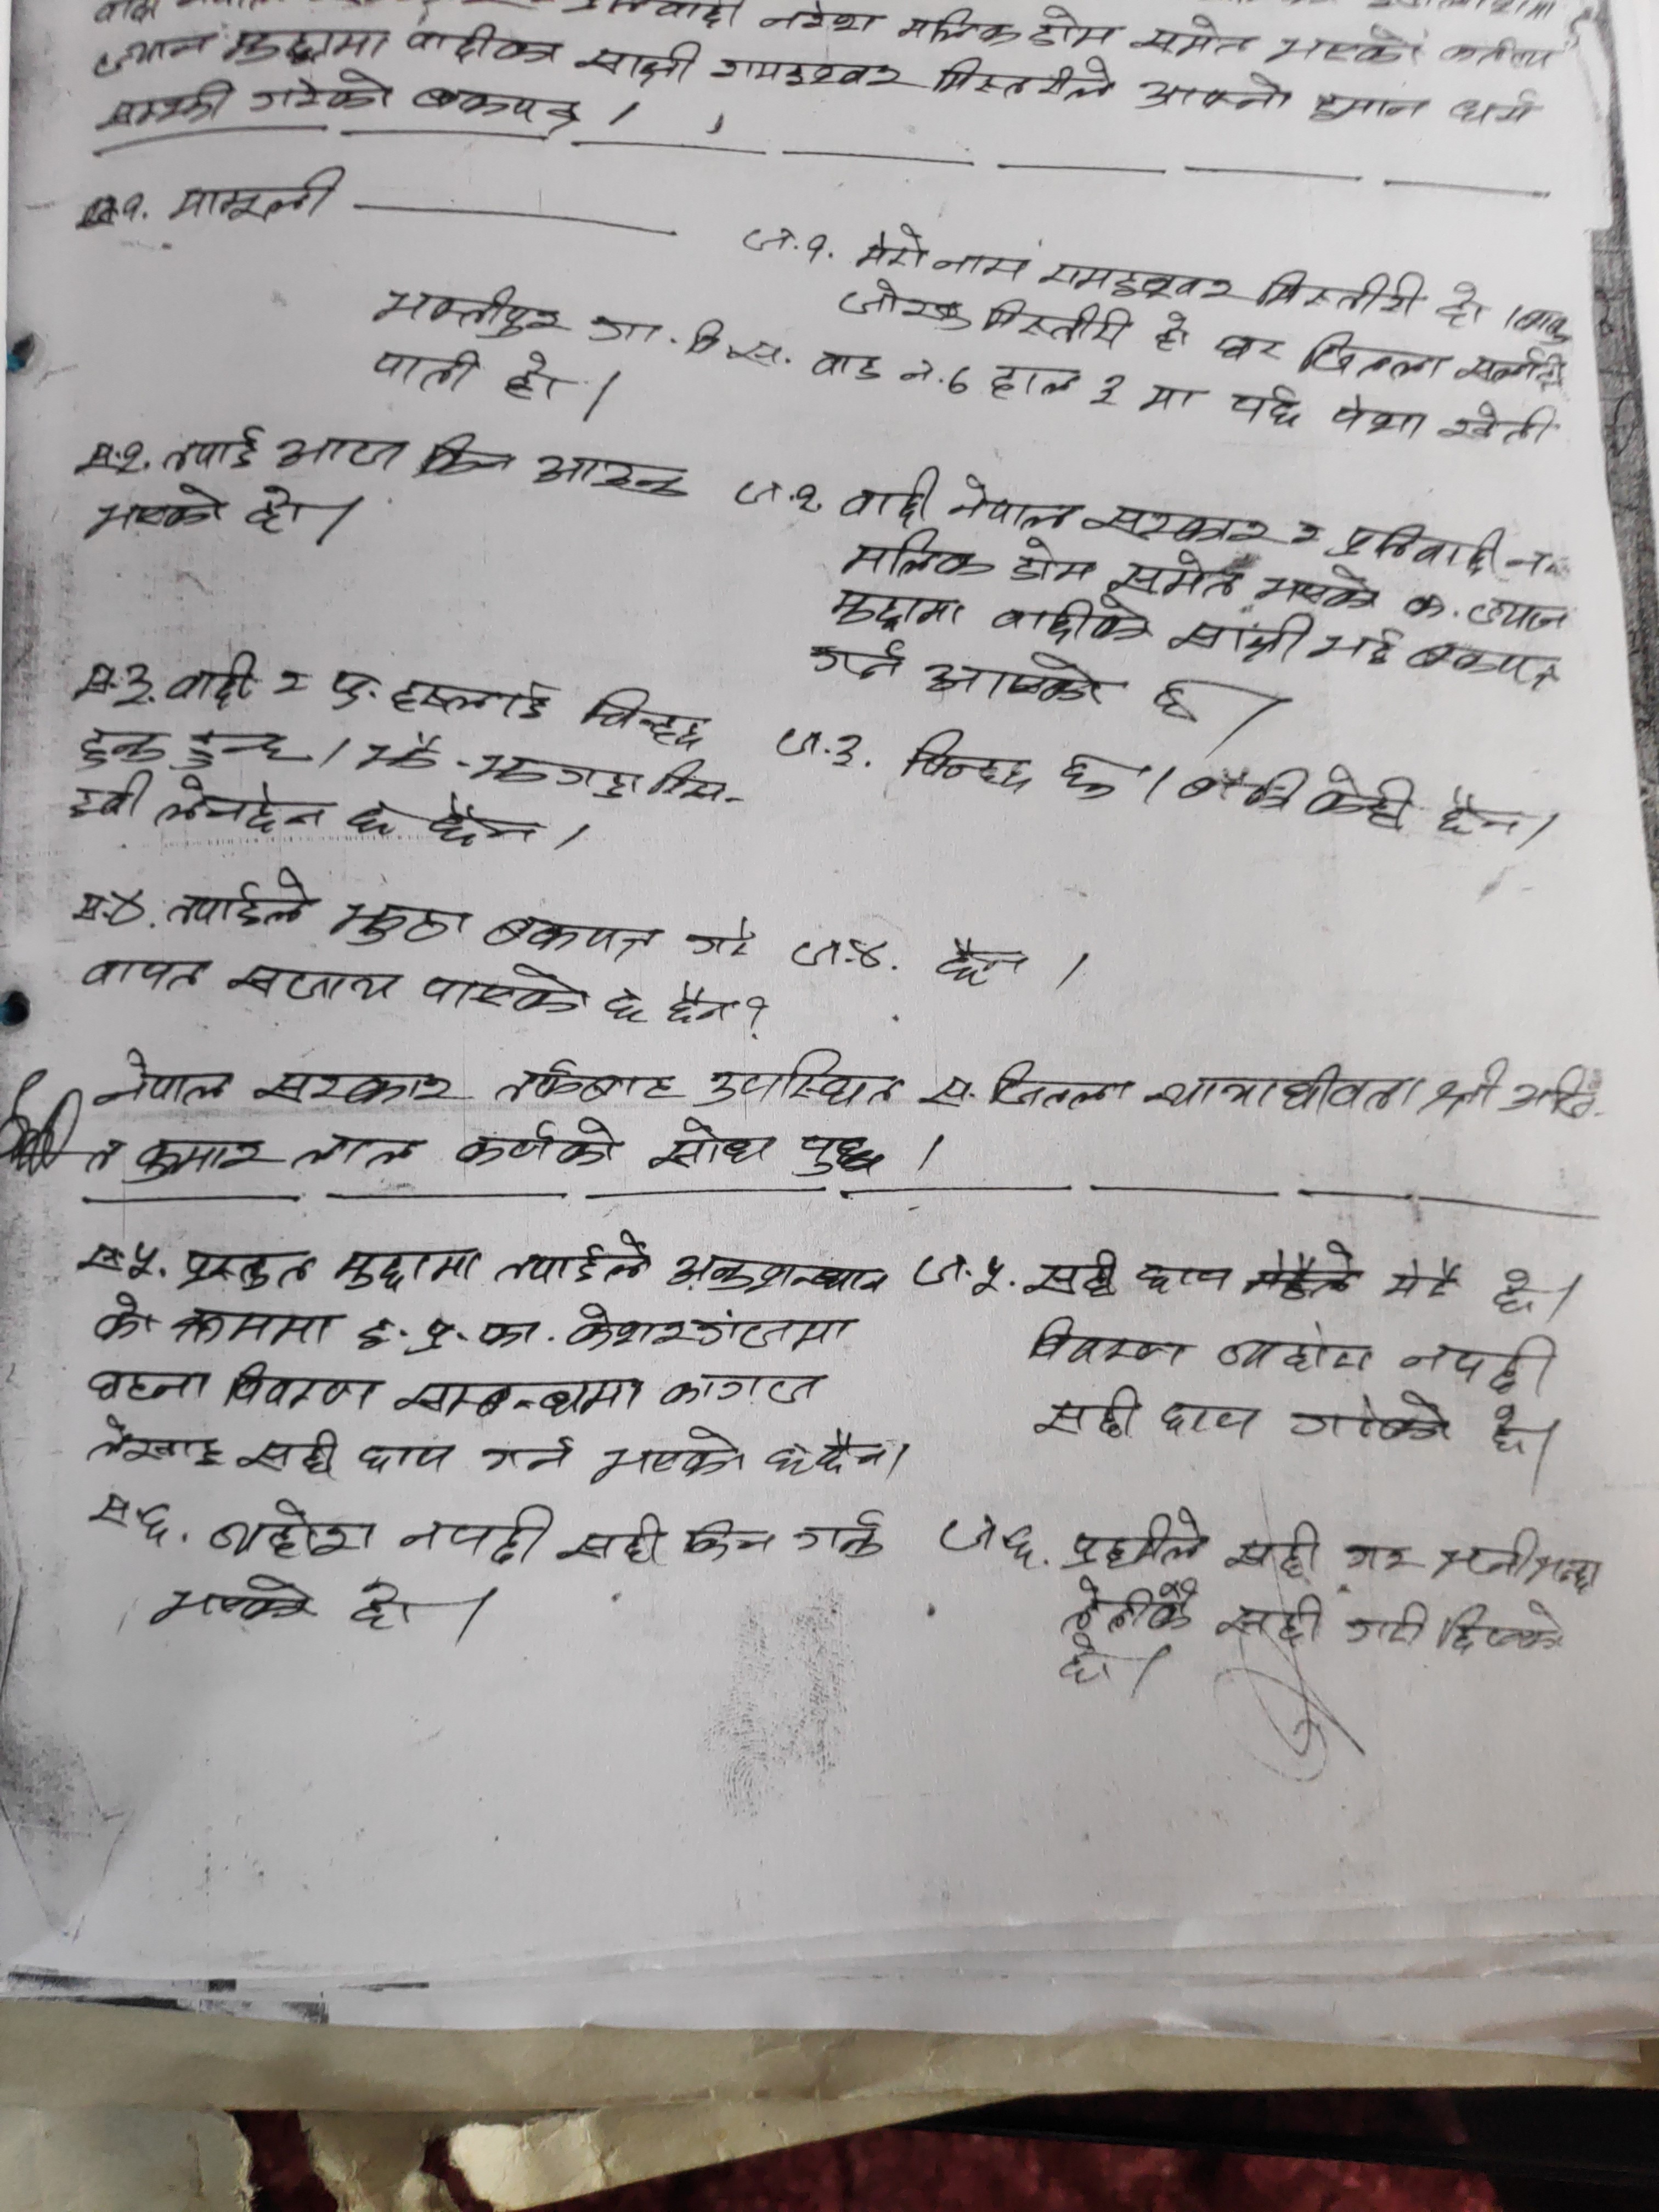 प्रतिवादी नरेश मलिक डोम समेत भएको कर्तव्य
ज्यान मुद्दामा वादीका साक्षी रामइश्वर मिस्तरीले आफ्नो इमान धर्म
सम्झी गरेको बकपत्र ।
स.१. मामूली
ज.१. मेरो नाम रामइश्वर मिस्तीरी हो । बाबु
मिस्तीरी हो घर जिल्ला सर्लाही
भक्तीपुर गा.वि.स. वार्ड नं.६ हाल ३ मा पर्छ पेशा खेती
पाती हो ।
स.२. तपाई आज किन आउनु
भएको हो ।
ज.२. वादी नेपाल सरकार र प्रतिवादी
मलिक डोम समेत भएको क. ज्यान
मुद्दामा वादीको साक्षी भई बकपत्र
गर्न आएको छु ।
स.३. वादी र प्र. हरूलाई चिन्नुहुन्छ
झै-झगडा रिस-
इवी लेनदेन छ छैन ।
ज.३. चिन्दछु । बाँकि केही छैन ।
स.४. तपाईले झुठा बकपत्र गरे
वापत सजाय पाएको छ छैन ?
ज.४. छैन ।
नेपाल सरकार तर्फबाट उपस्थित स. जिल्ला न्यायाधीवक्ता श्री अजि-
त कुमार लाल कर्णको सोध पुछ ।
स.५. प्रस्तुत मुद्दामा तपाईले अनुशन्धान
को क्रममा इ.प्र.का. केशरगंजमा
घटना विवरण सम्बन्धमा कागज
लेखाइ सही छाप गर्नु भएको छ छैन ।
ज.५. सही छाप मेरै हो ।
विवरण व्यहोरा नपढी
सही छाप गरेको हो ।
स.६. व्यहोरा नपढी सही किन गर्नु
भएको हो ।
ज.६. प्रहरीले सही गर भनी भन्दा
सही गरी दिएको
हो ।